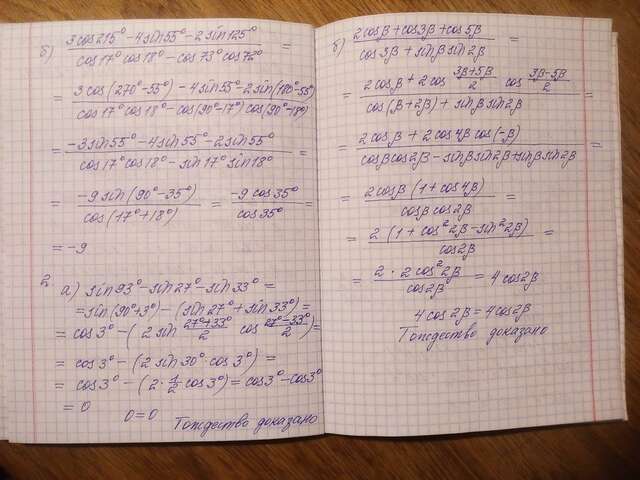 б) (3cos215° - 4sin55° - 2sin125°)/(cos17°cos18° - cos73°cos72°) =
= (3cos(270°-55°) - 4sin55° - 2sin(180°-55°))/(cos17°cos18° - cos(90°-17°)cos(90°-18°)) =
= (-3sin55° - 4sin55° - 2sin55°)/(cos17°cos18° - sin17°sin18°) =
= (-9sin(90°-35°))/(cos(17°+18°)) = (-9cos35°)/(cos35°) =
= -9
2. а) sin93° - sin27° - sin33° =
= sin(90°+3°) - (sin27° + sin33°) =
= cos3° - (2sin (27°+33°)/2 cos (27°-33°)/2) =
= cos3° - (2sin30°·cos3°) =
= cos3° - (2·1/2 cos3°) = cos3° - cos3°
= 0
0=0 Тождество доказано
б) (2cosβ + cos3β + cos5β)/(cos3β + sinβ sin2β) =
= (2cosβ + 2cos (3β+5β)/2 cos (3β-5β)/2)/(cos(β+2β) + sinβ sin2β) =
= (2cosβ + 2cos4β cos(-β))/(cosβcos2β - sinβsin2β + sinβsin2β) =
= (2cosβ(1 + cos4β))/(cosβcos2β) =
= (2(1 + cos²2β - sin²2β))/(cos2β) =
= (2·2cos²2β)/(cos2β) = 4cos2β
4cos2β = 4cos2β
Тождество доказано